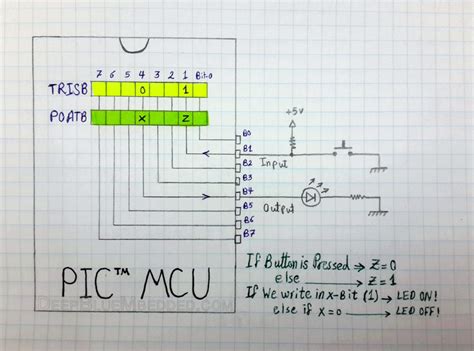 7 6 5 4 3 2 1 Bit0
TRISB 0 1
POATB X Z
+5V
B0
B1
Input
B2
B3
B4
Output
B5
B6
B7
PIC™ MCU
DEEPBLUEMBEDDED.COM
If Button is Pressed → Z=0
else → Z=1
If We write in X-Bit (1) → LED ON!
else if X=0 → LED OFF!